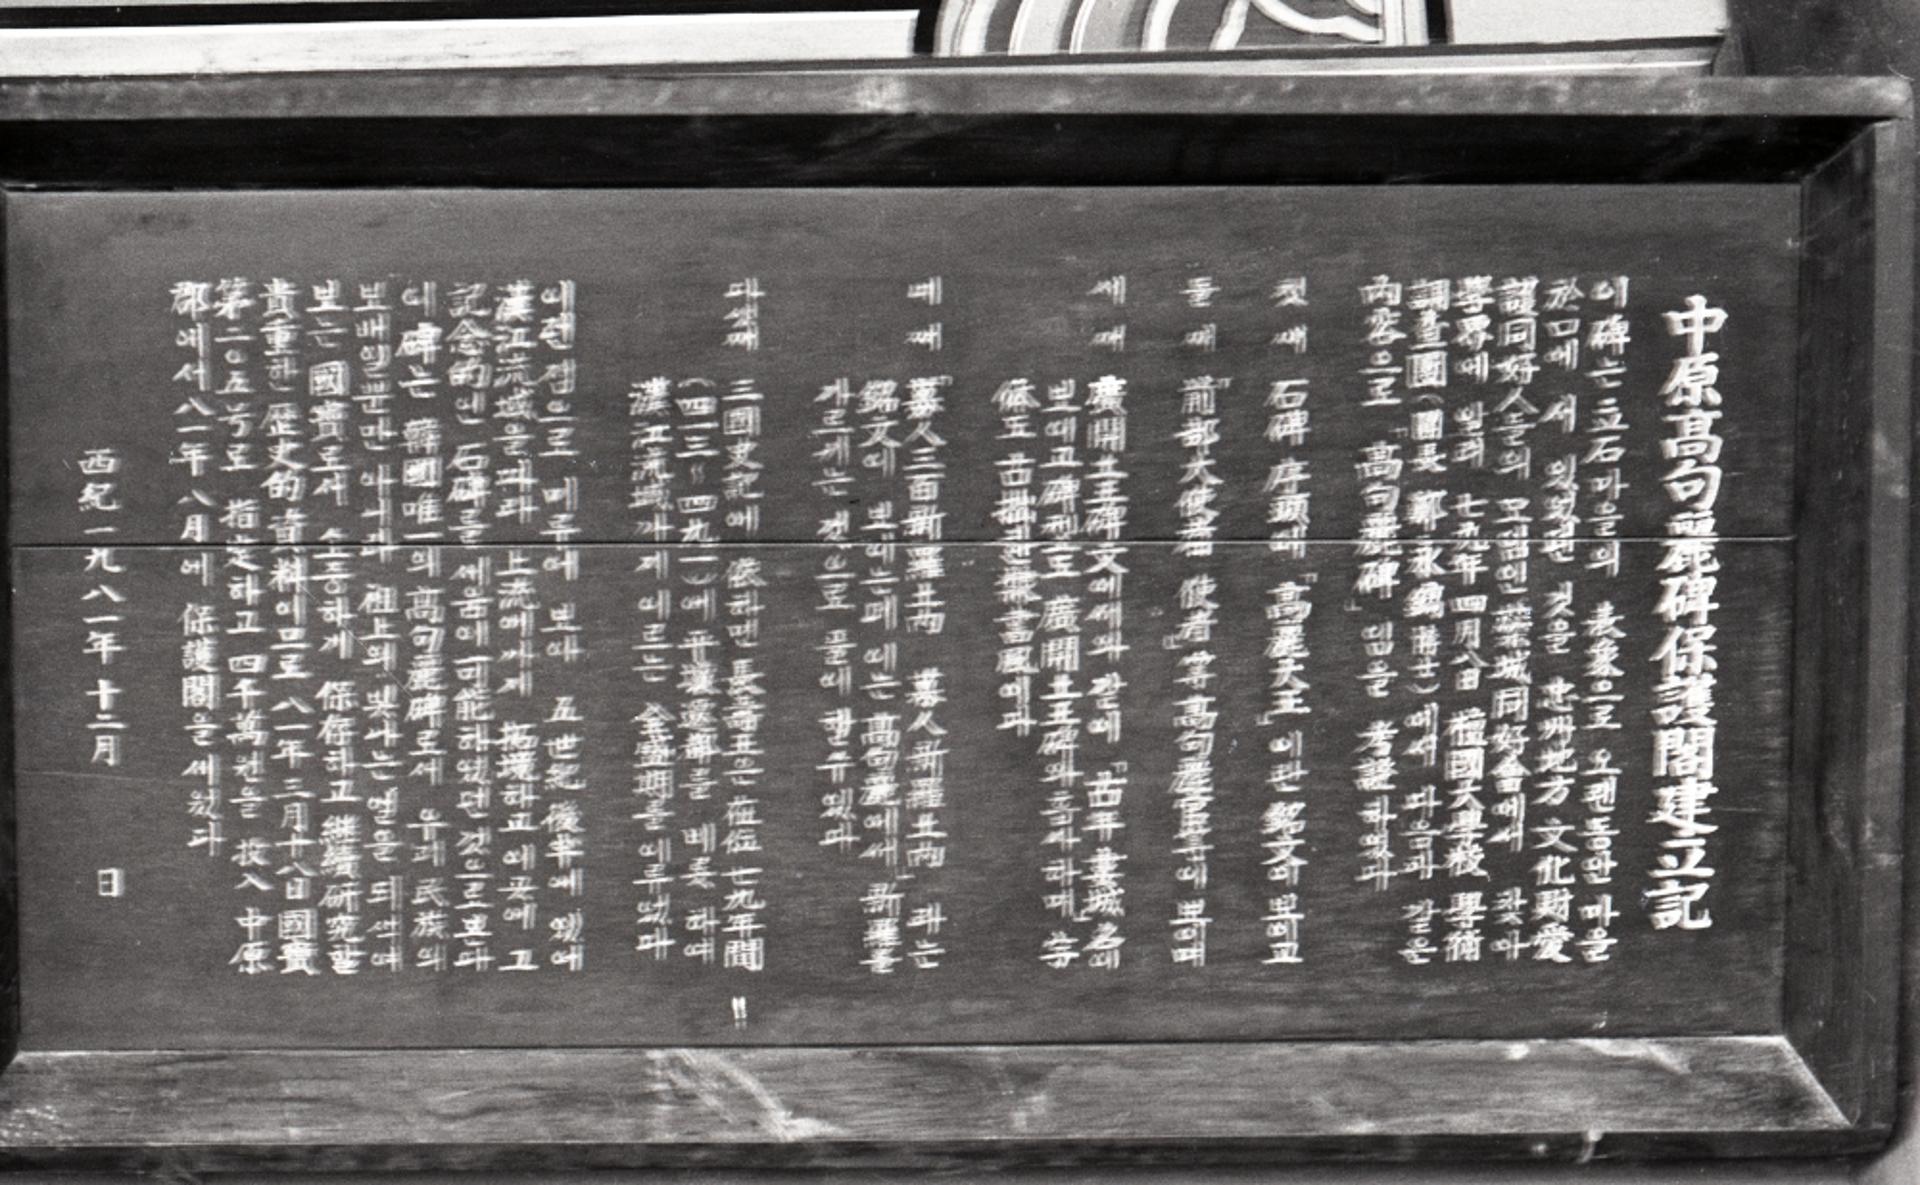 中原高句麗碑保護閣建立記
이 碑는 立石마을의 表象으로 오랜동안 마을
於口에 서 있었던 것을 忠州地方 文化財愛
護同好人들의 모임인 蘂城同好會에서 찾아
學界에 알려 七九年 四月八日 檀國大學校 學術
調査團(團長 鄭永鎬 博士)에서 다음과 같은
內容으로 「高句麗碑」임을 考證하였다
첫째 石碑 序頭에 「高麗大王」이란 銘文이 보이고
둘째 「前部大使者」「使者」等 高句麗官等이 보이며
세째 廣開土王碑文에서와 같이 「古牟婁城」名이
보이고 碑型도 廣開土王碑와 흡사하며 筆
도 古撲한 書風이다
네째 「募人三百新羅土內 募人新羅土內」라는
銘文이 보이는데 이는 高句麗에서 新羅를
가르키는 것으로 풀이 할수 있다
다섯째 三國史記에 依하면 長壽王은 在位 七九年間
(四一三〜四九一)에 平壤遷都를 비롯 하여
漢江流域까지 이르는 全盛期를 이루었다
이런 점으로 미루어 보아 五世紀 後半에 있어
漢江流域을 따라 上流에까지 拓境하고 이곳에 그
記念的인 石碑를 세움이 可能하였던 것으로 본다
이 碑는 韓國唯一의 高句麗碑로서 우리 民族의
보배일뿐만 아니라 祖上의 빛나는 얼을 되새겨
보는 國寶로서 소중하게 保存하고 繼續硏究할
貴重한 歷史的 資料이므로 八一年 三月十八日 國寶
第二○五号로 指定하고 四千萬원을 投入 中原
郡에서 八一年 八月에 保護閣을 세웠다
西紀一九八一年 十二月 日